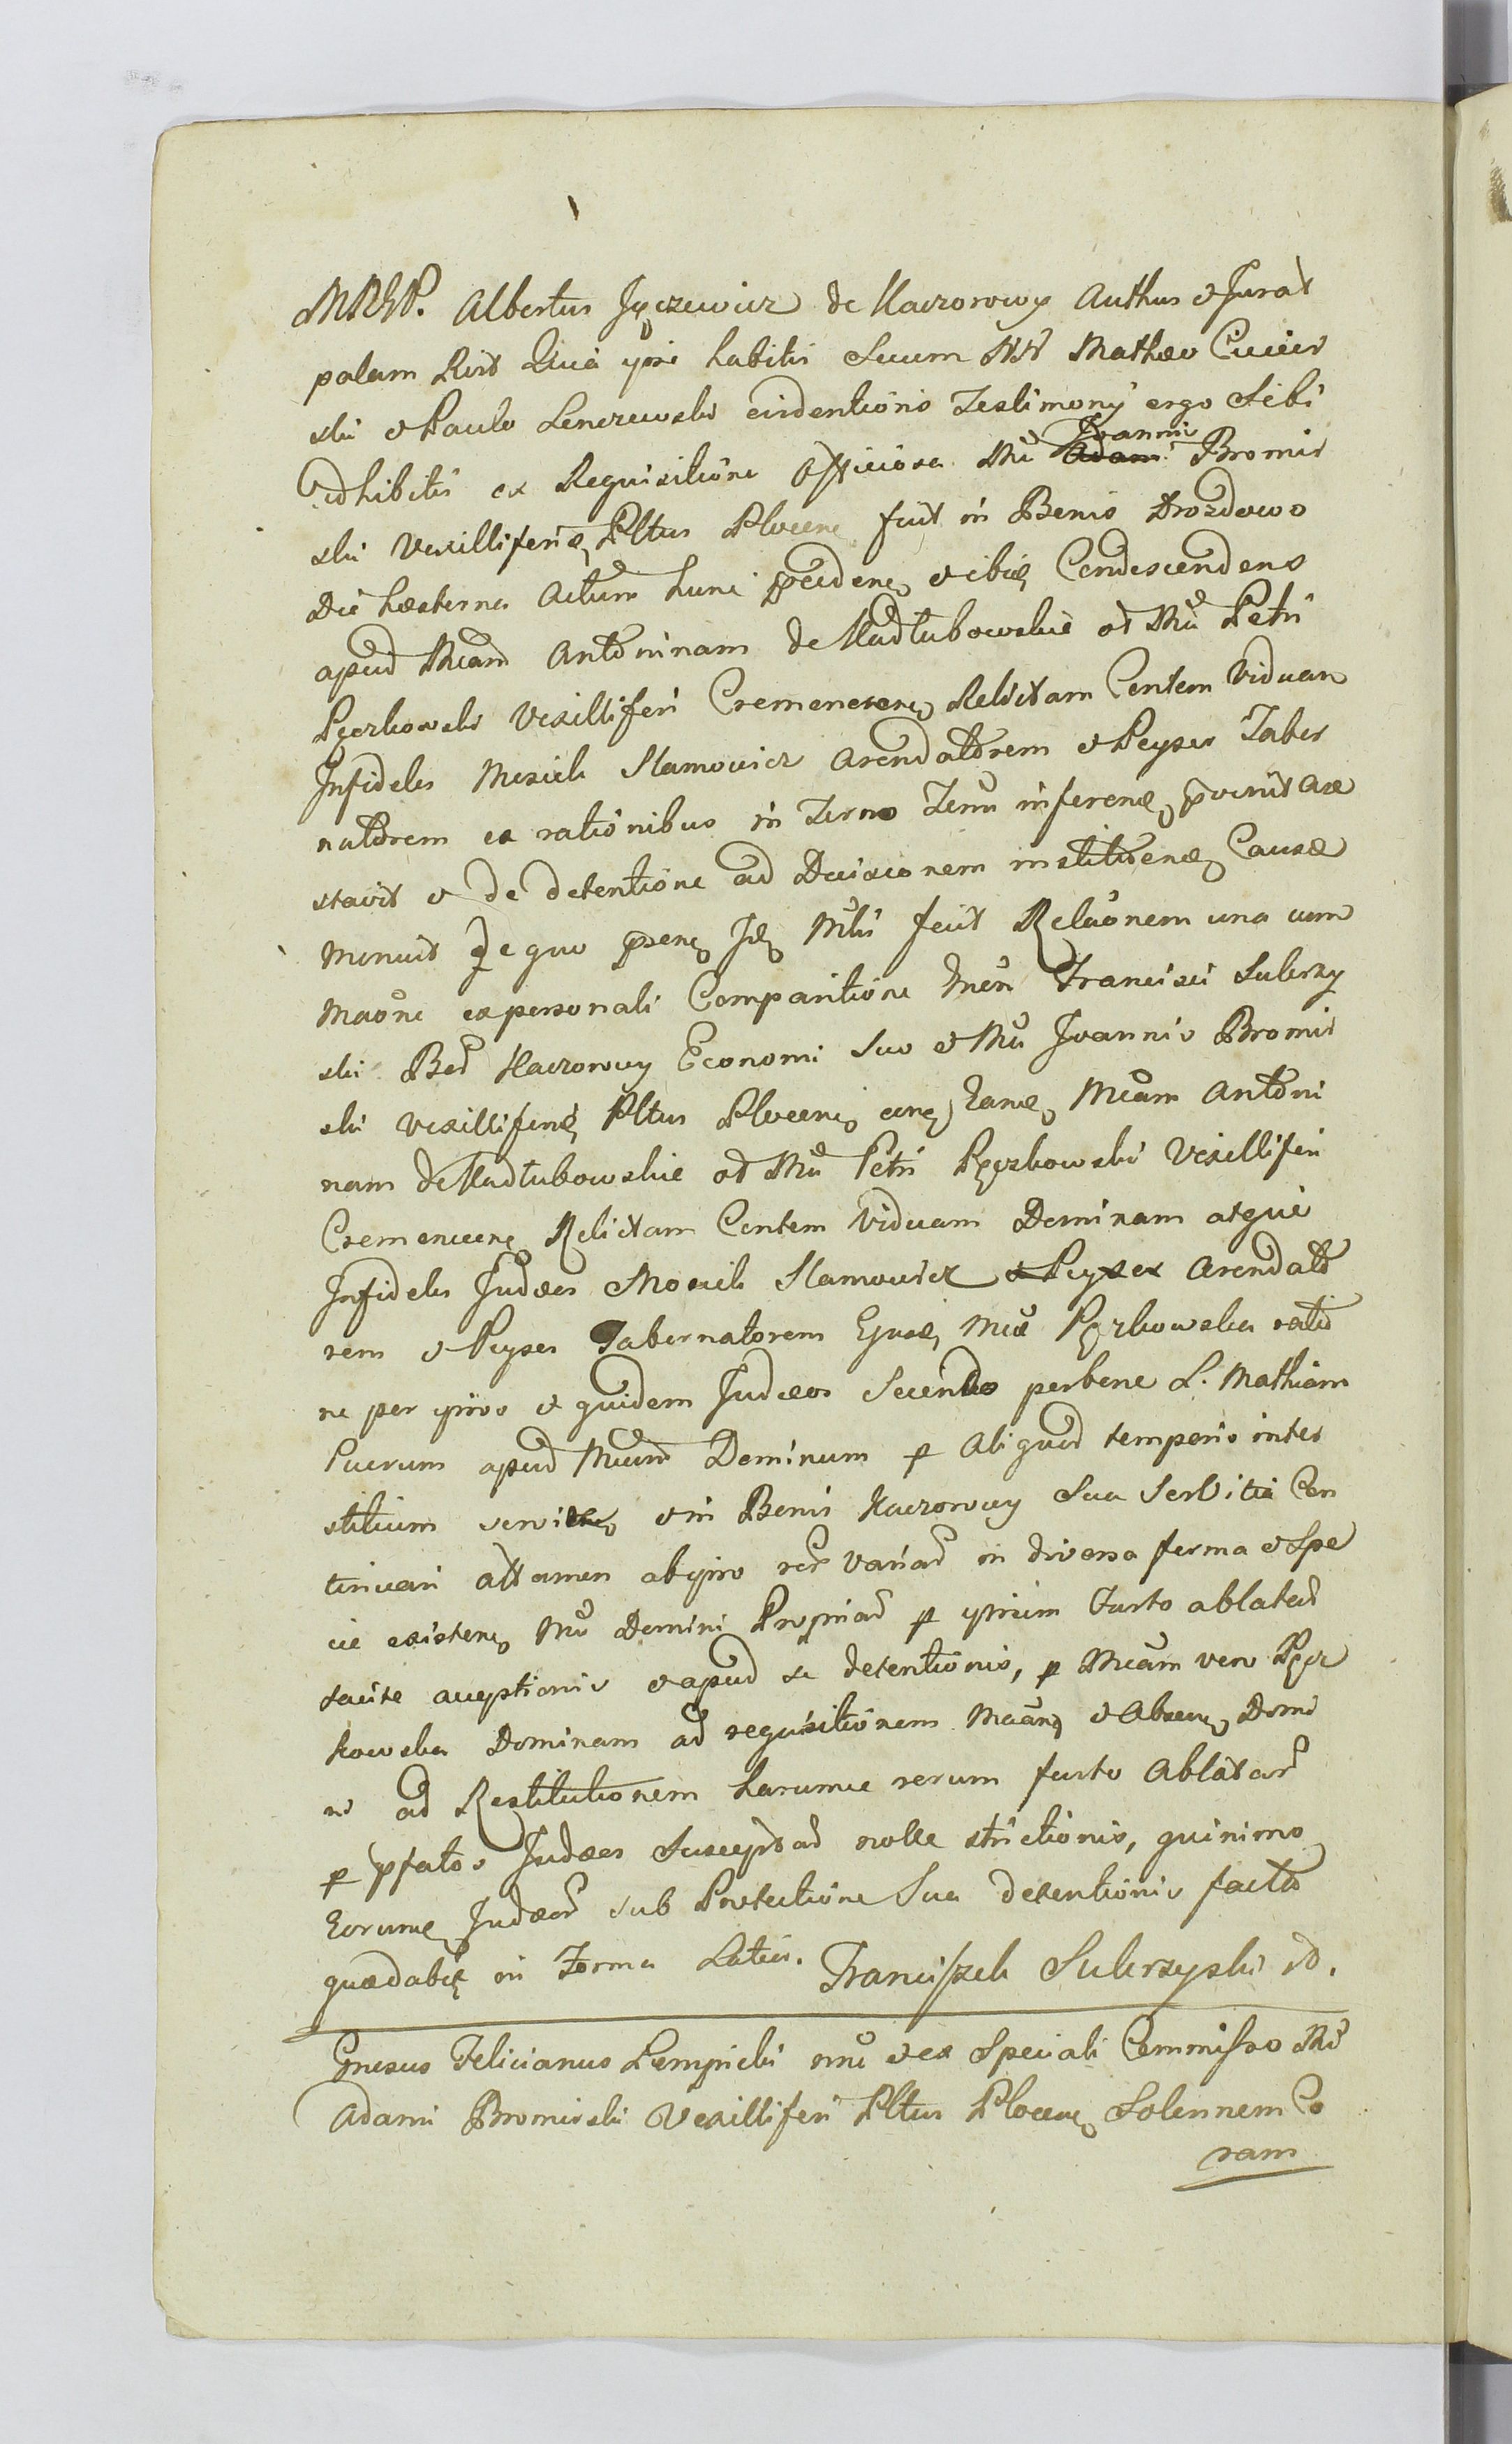 MRGP. Albertus Jęczewicz de Kaczorowy Authus et Jurat
palam Rīt Quia ipse habitis Secum NN Mathæo Cwicis
ski et Paulo Lenczewski evidentioris Testimonÿ ergo Sibi
Adhibitis ex Requisitione Officiosa Mci Joannis Adami Bromir
ski Vexilliferidæ Pltus Plocen fuit in Bonis Drozdowo
Die hesterna Actum hunc præceden et ibiq Condescendens
apud Mcam Antoninam de Kadłubowskie ol Mci Petri
Pęczkowski Vexilliferi Cremenecen Relictam Contem Viduam
Infideles Mosiek Slamowicz Arendatorem et Peyser Taber
natorem ex rationibus in Termo Termi inferen pvenit are
stavit et de detentione ad Decisionem instituen Causæ
Monuit De quo præsen Jd Mtlis fecit Relaonem una cum
Maone ex personali Comparitione Gnesi Francisci Sulerzy
ski Bod Kaczorowy Economi Suo et Mci Joannis Bromir
ski Vexilliferidæ Pltus Plocen cone Eand Mcam Antoni
nam de Kadłubowskie ol Mci Petri Pęczkowski Vexilliferi
Cremenecen Relictam Contem Viduam Dominam atque
Infideles Judæos Mosiek Slamowicz et Peyser Arendato
rem et Peyser Tabernatorem Ejusd Mcæ Pęczkowska ratio
ne per ipsos et quidem Judæos Scientes perbene L. Mathiam
Puerum apud Mcum Dominum p Aliquod temporis inter
stitium servire et in Bonis Kaczorowy Sua Servitia Con
tinuari attamen ab ipso rer variar in diversa forma et Spe
cie existen Mci Domini Propriar p ipsum furto ablatar
tacite acceptionis et apud se detentionis, p Mcam vero Pęcz
kowska Dominam ad requisitionem Mcan et Absen Domi
ni ad Restitutionem harumce rerum furto Ablatar
p pfatos Judæos Susceptar nolle strictionis, quinimo
Eorumd Judæor sub Protectione Sua detentionis facto
quædabit in Termo Latius. Franciszek Sulerzyski m.
Gnesus Felicianus Lempicki nne et ex Speciali Commisso Mci
Adami Bromirski Vexilliferi Pltus Plocen Solennem Co
ram